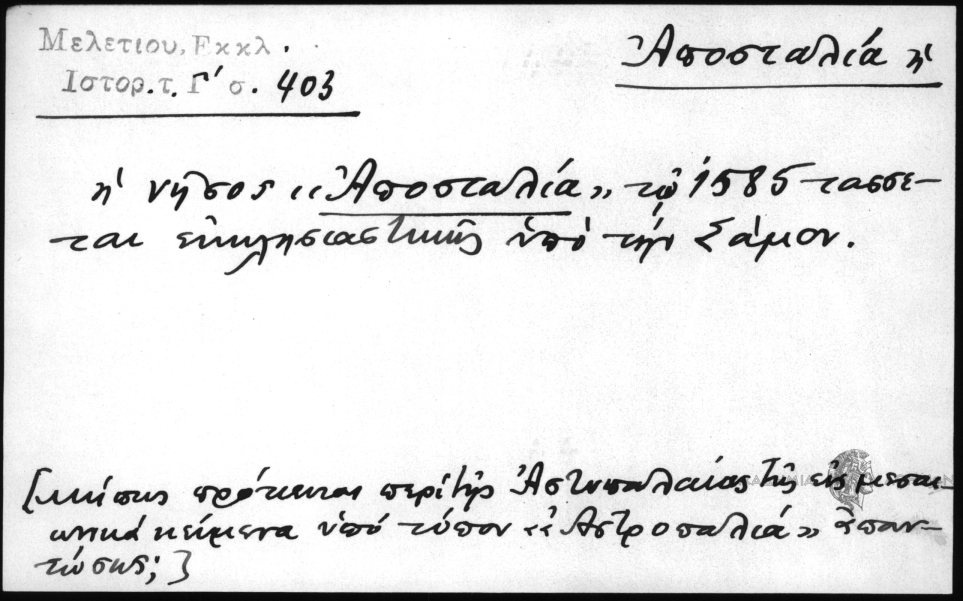 Μελετίου, Εκκλ.
Ἀποσταλία ἡ
Ιστορ. τ. Γ΄ σ. 403
ἡ νῆσος «Ἀποσταλία» τῷ 1585 τάσσε-
ται ἐκκλησιαστικῶς ὑπὸ τὴν Σάμον.
[μήπως πρόκειται περὶ τῆς Ἀστυπαλαίας τῆς εἰς μεσαι-
ωνικὰ κείμενα ὑπὸ τύπον «Ἀστροπαλιά» ἀπαν-
τώσης;]